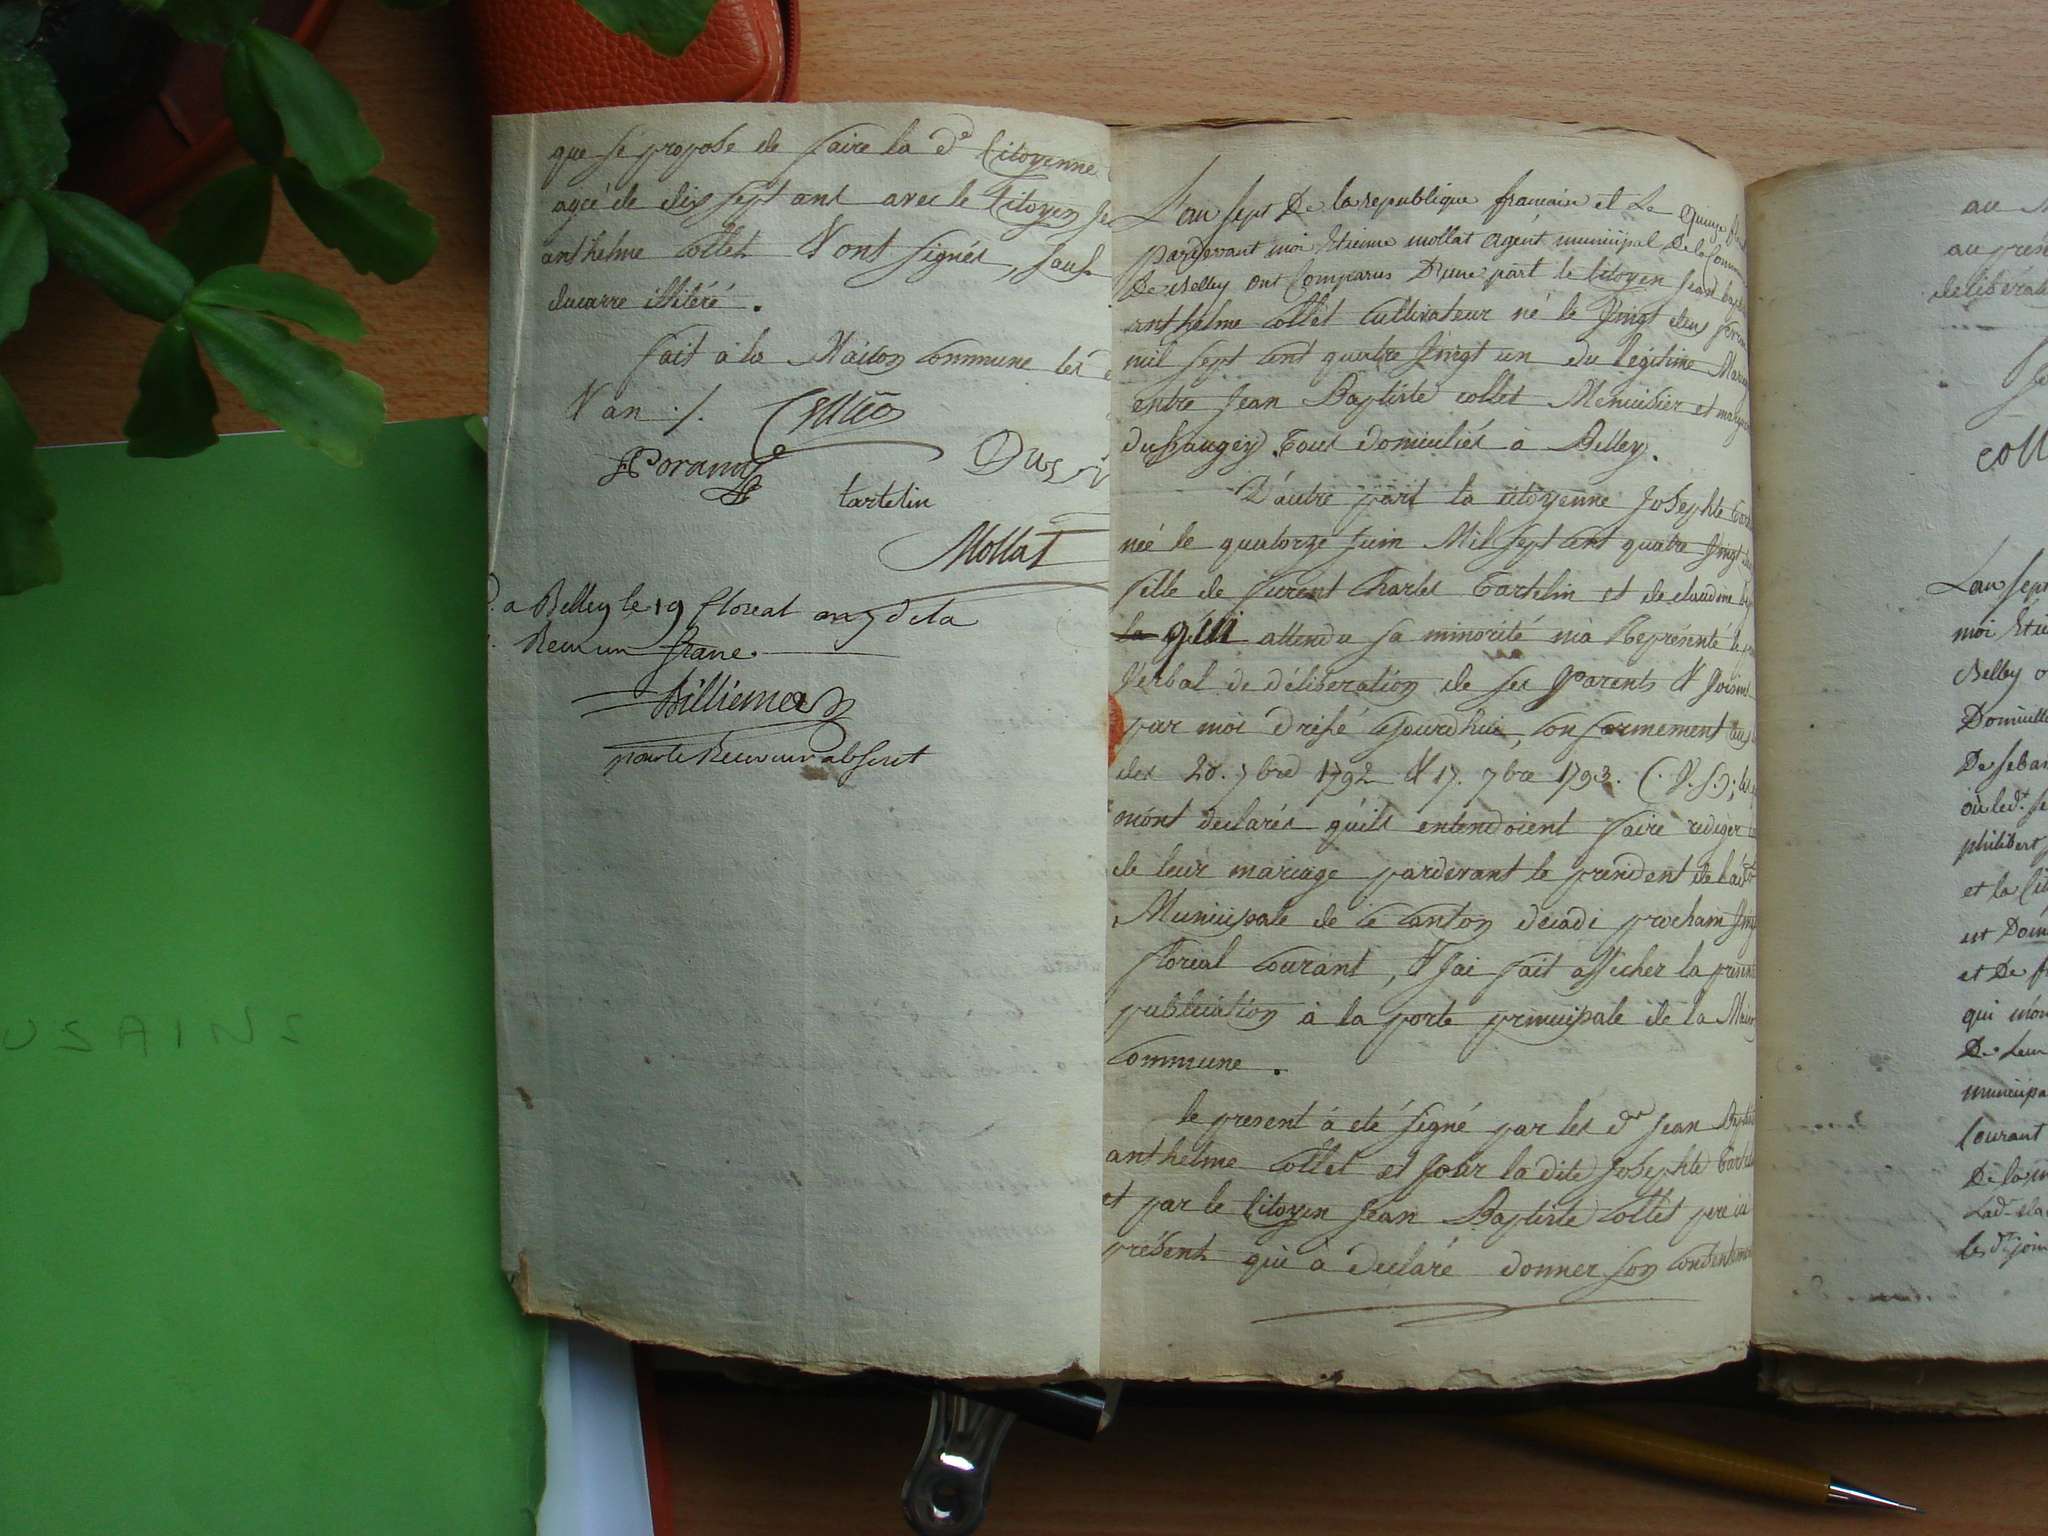 que se propose de faire la de Citoyenne
agée de dix sept ans avec le Citoyen
anthelme Collet & ont signés, sauf
ducarre illitéré.
fait à la Maison Commune les
& an 7.
tartelin
Mollat
a Belley le 19 floreal an 7 de la
Recu un franc
Billiemaz
pour le Receveur absent
USAINS
L'an sept De la republique francaise et Le quinze
pardevant moi Etienne mollat Agent municipal De la Commune
De Belley ont Comparus D'une part le Citoyen Jean
anthelme Collet Cultivateur né le Vingt deux
mil sept cent quatre Vingt un du legitime
entre Jean Baptiste Collet Menuisier et
dufraugey Tous domiciliés à Belley.
D'autre part la citoyenne Josephte
née le quatorze Juin Mil sept cent quatre Vingt
fille de Charles Tartelin et de claudine
la qui attendu sa minorité m'a Représenté le
Verbal de délibération de ses Parents & Voisins
par moi dressé cejourdhui, Conformement aux
des 20. 7bre 1792 & 17. 7bre 1793. (V.S.);
m'ont declarés qu'ils entendoient faire rediger
de leur mariage pardevant le président de l'ad
Municipale de ce Canton decadi prochain
floréal Courant, & J'ai fait afficher la presente
publication à la porte principale de la
Commune.
le present à eté signé par les dts Jean
anthelme Collet et pour la dite Josephte
et par le Citoyen Jean Baptiste Collet pere ici
présent qui à declaré donner son Consentement
au
au
deliberat
Coll
L'an sept
moi
Belley
Domicilié
De
où led.
philibert
et la
est
et De
qui m'on
De Leur
municipa
Courant
De la m
Lad.
les